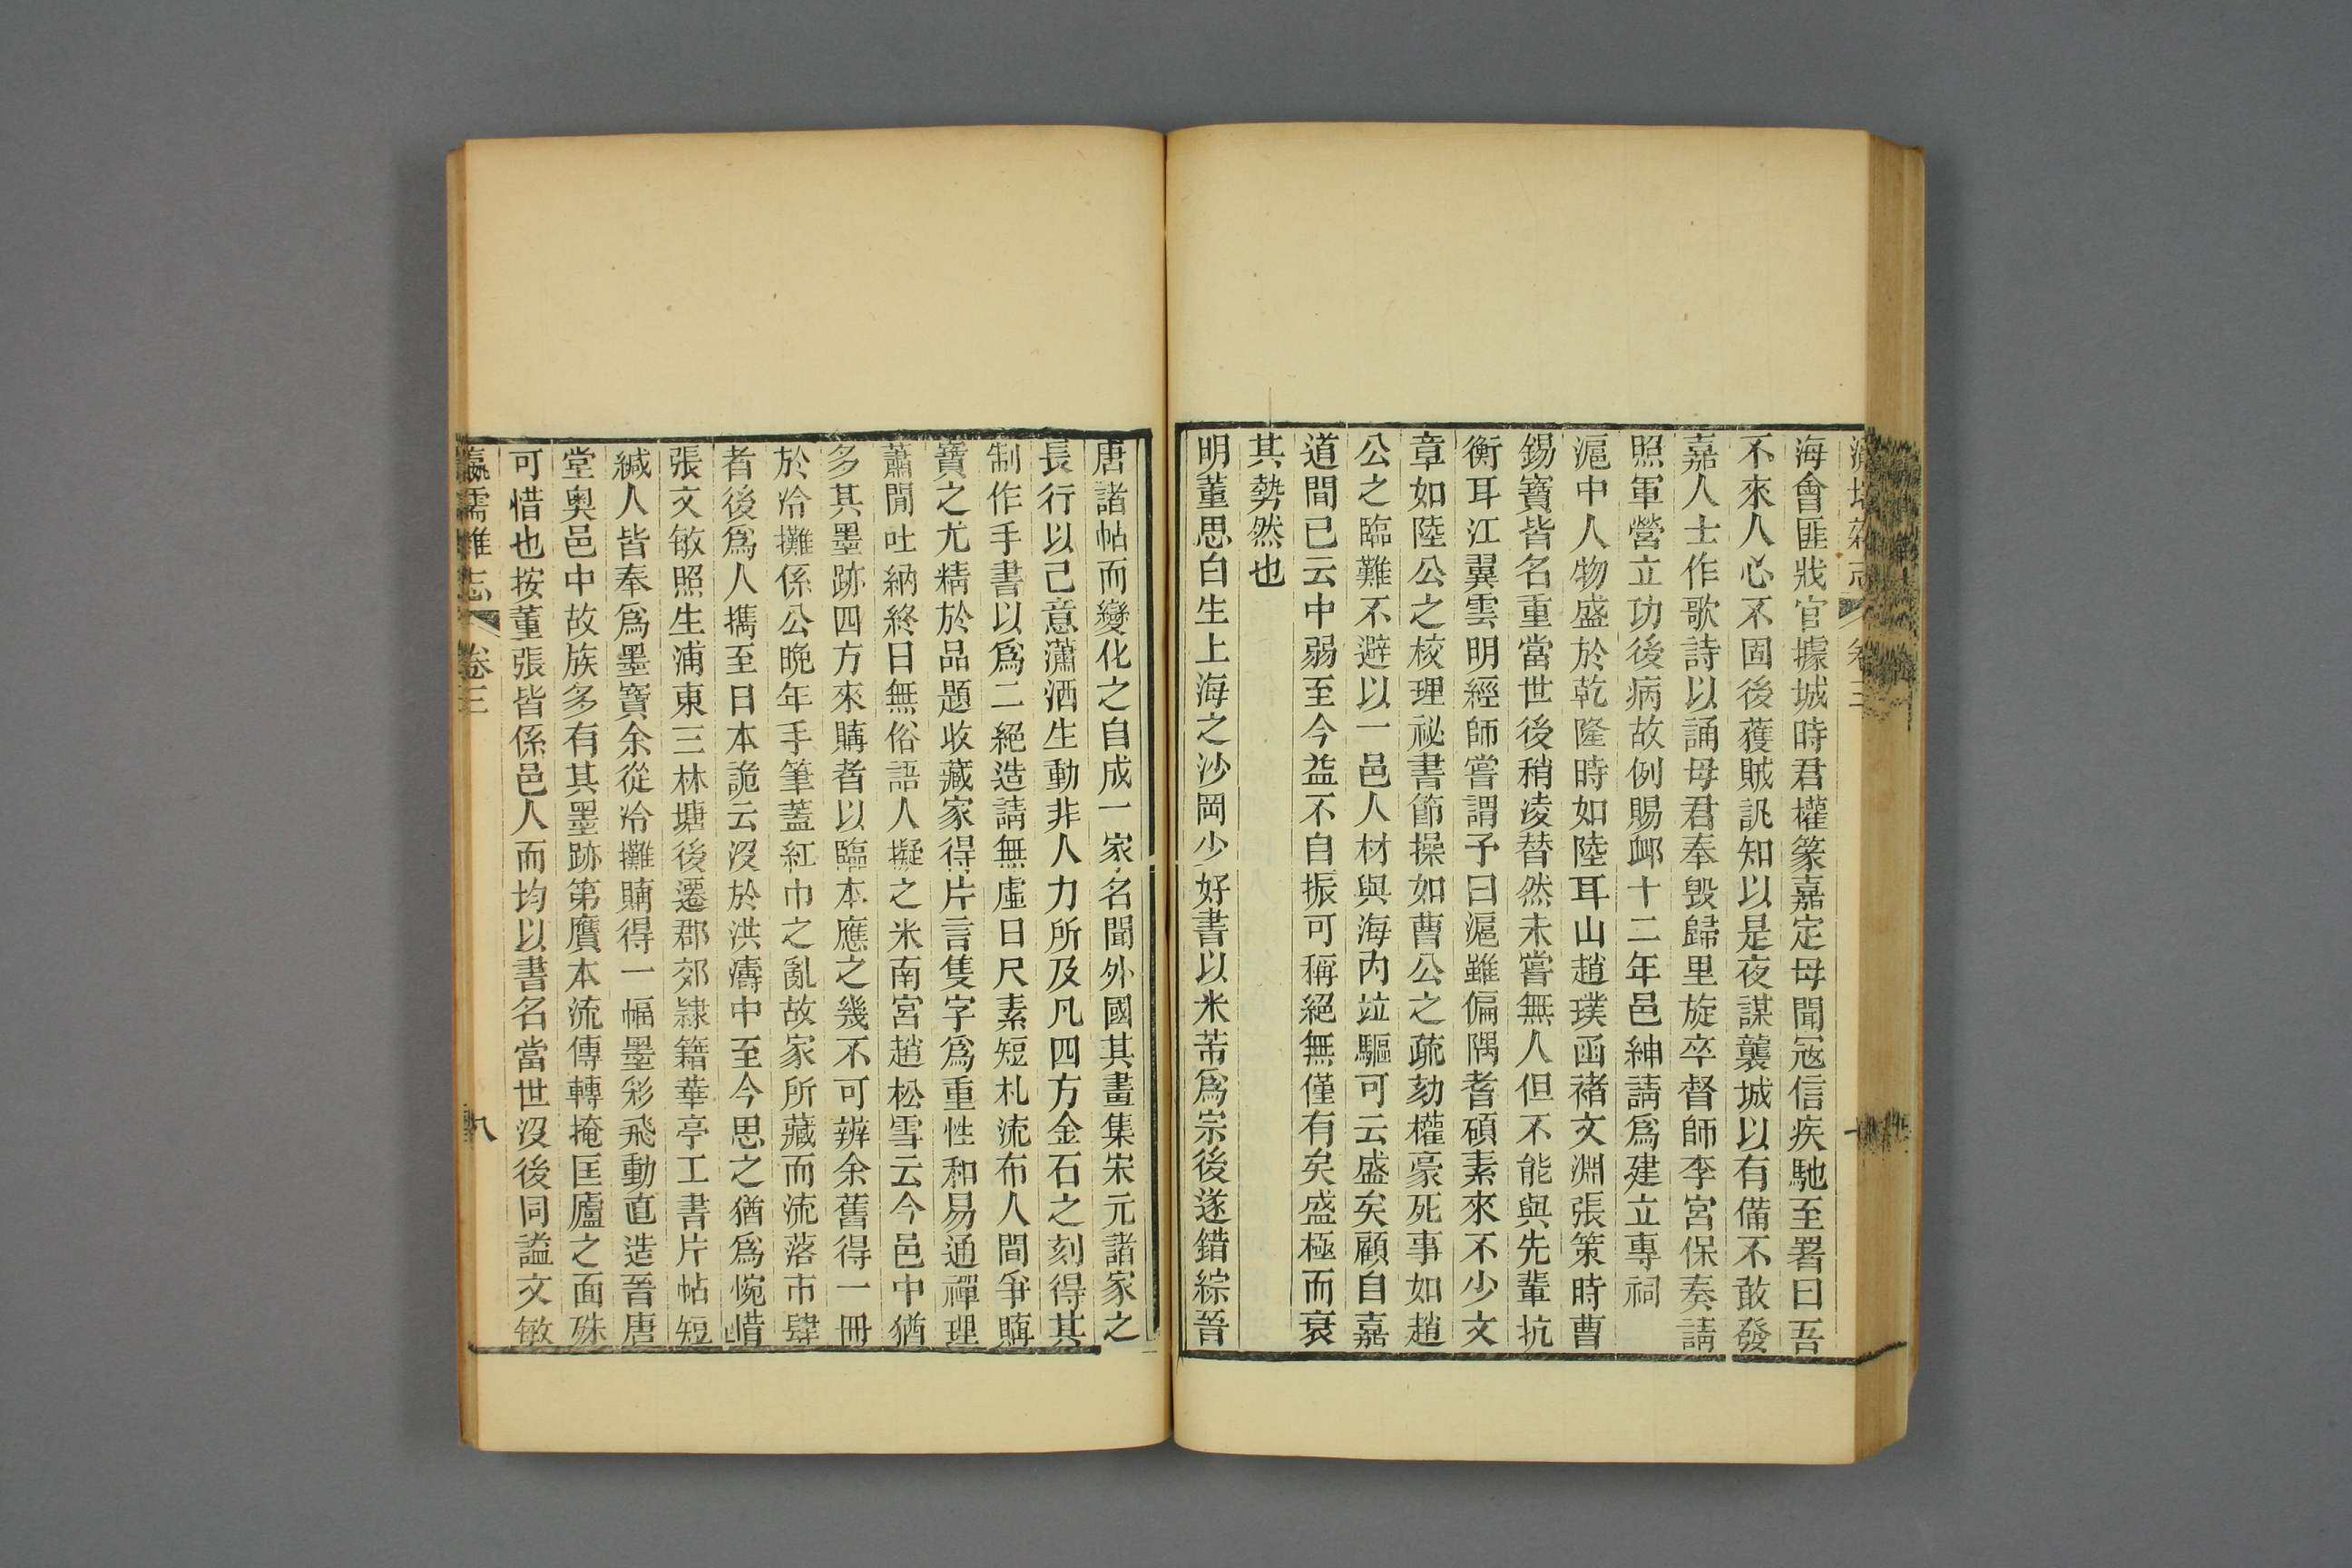 海會匪戕官據城時君權篆嘉定母聞寇信疾馳至署曰吾
不來人心不固後獲賊訊知以是夜謀襲城以有備不敢發
嘉人士作歌詩以誦母君奉毀歸里旋卒督師李宮保奏請
照軍營立功後病故例賜䘏十二年邑紳請爲建立專祠
滬中人物盛於乾隆時如陸耳山趙璞函褚文淵張策時曹
錫寶皆名重當世後稍淩替然未嘗無人但不能與先輩抗
衡耳江翼雲明經師嘗謂予曰滬雖偏隅耆碩素來不少文
章如陸公之校理祕書節操如曹公之疏劾權豪死事如趙
公之臨難不避以一邑人材與海內竝驅可云盛矣顧自嘉
道間已云中弱至今益不自振可稱絕無僅有矣盛極而衰
其勢然也
明董思白生上海之沙岡少好書以米芾爲宗後遂錯綜晉
唐諸帖而變化之自成一家名聞外國其畫集宋元諸家之
長行以己意瀟洒生動非人力所及凡四方金石之刻得其
制作手書以爲二絕造請無虛日尺素短札流布人間爭購
寶之尤精於品題收藏家得片言隻字爲重性和易通禪理
蕭閒吐納終日無俗語人擬之米南宮趙松雪云今邑中猶
多其墨跡四方來購者以臨本應之幾不可辨余舊得一冊
於冷攤係公晚年手筆蓋紅巾之亂故家所藏而流落市肆
者後爲人攜至日本詭云沒於洪濤中至今思之猶爲惋惜
張文敏照生浦東三林塘後遷郡郊隸籍華亭工書片帖短
緘人皆奉爲墨寶余從冷攤購得一幅墨彩飛動直造晉唐
堂奧邑中故族多有其墨跡第贋本流傳轉掩匡廬之面殊
可惜也按董張皆係邑人而均以書名當世沒後同謚文敏
瀛壖雜志 卷三 八